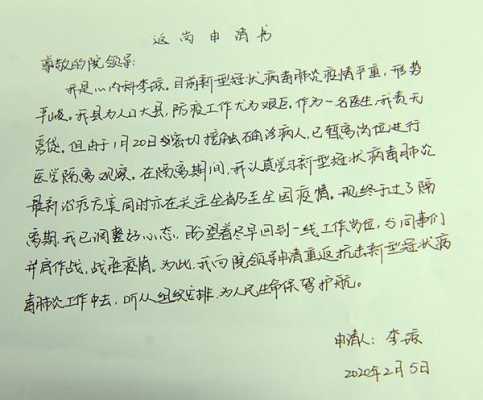 返岗申请书
尊敬的院领导:
我是心内科李琼。目前新型冠状病毒肺炎疫情严重，形势
严峻。我县为人口大县，防疫工作尤为艰巨。作为一名医生，我责无
旁贷。但由于1月20日密切接触确诊病人，已暂离岗位进行
医学隔离观察。在隔离期间，我认真学习新型冠状病毒肺炎
最新诊疗方案，同时亦在关注全省乃至全国疫情。现终于过了隔
离期，我已调整好心态，盼望着尽早回到一线工作岗位，与同事们
并肩作战，战胜疫情。为此，我向院领导申请重返抗击新型冠状病
毒肺炎工作中去，听从组织安排，为人民生命保驾护航。
申请人：李琼
2020年2月5日